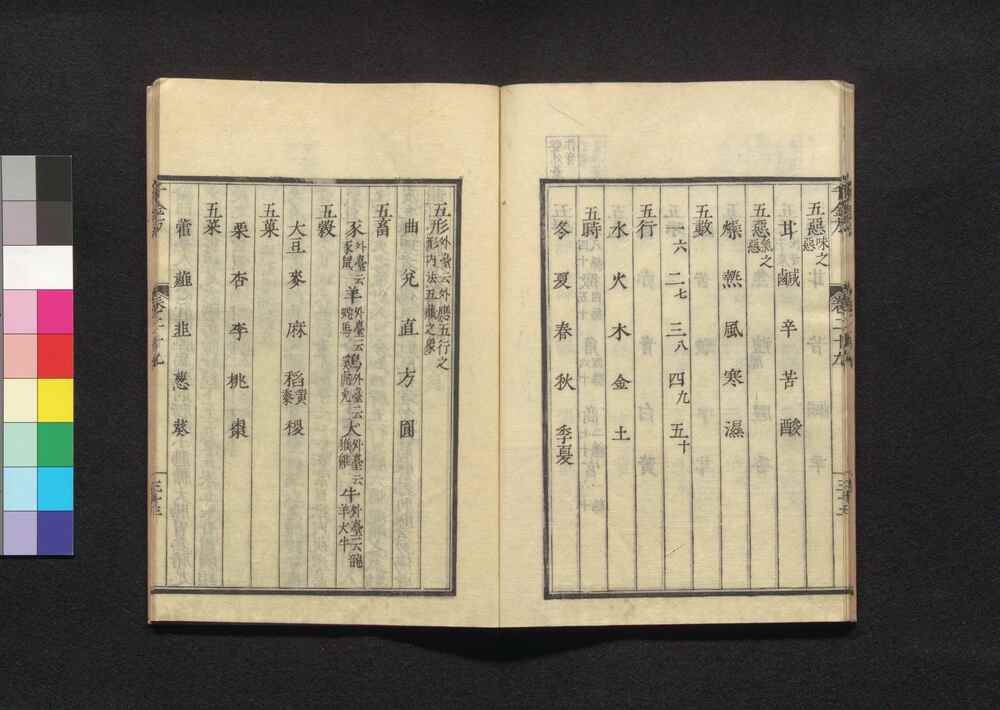 五惡味之惡
甘 鹹 辛 苦 酸
五惡氣之惡
燥 熱 風 寒 濕
五數
一六 二七 三八 四九 五十
五行
水 火 木 金 土
五時
冬 夏 春 秋 季夏
五形外臺云外應五行之形内法五藏之象
曲 兊 直 方 圓
五畜
豕外臺云豕鼠 羊外臺云蛇馬 鷄外臺云 犬外臺云 牛外臺云龍羊犬牛
五穀
大豆 麥 麻 稻黃黍 稷
五菓
栗 杏 李 桃 棗
五菜
藿 薤 韭 葱 葵